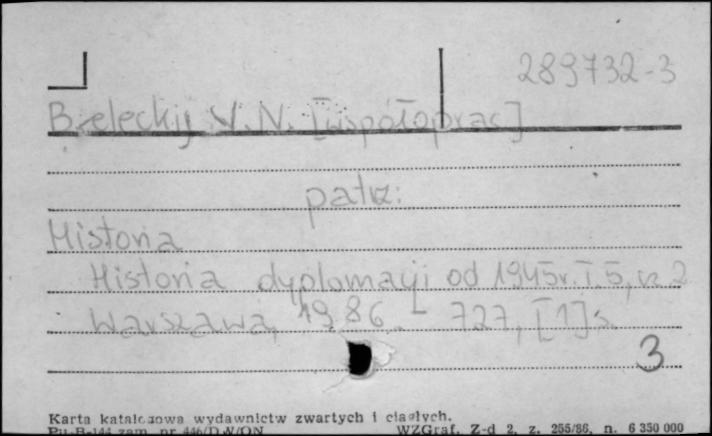 289732-3
Bieleckij V. N. [współoprac]
patrz:
Historia
Historia dyplomacji od 1945 r. T. 5, cz 2
Warszawa, 1986. - 727, [1] s.
3
Karta katalogowa wydawnictw zwartych i ciągłych.
Pu-B-144 zam. nr 446/D W/ON WZGraf. Z-d 2, z. 255/86, n. 6 350 000